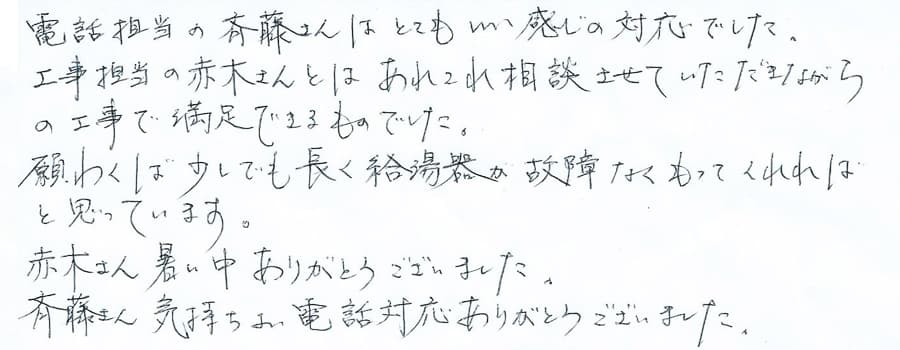 電話担当の斉藤さんはとてもいい感じの対応でした。
工事担当の赤木さんとはあれこれ相談させていただきながら
の工事で満足できるものでした。
願わくば少しでも長く給湯器が故障なくもってくれれば
と思っています。
赤木さん暑い中ありがとうございました。
斉藤さん気持ちよい電話対応ありがとうございました。